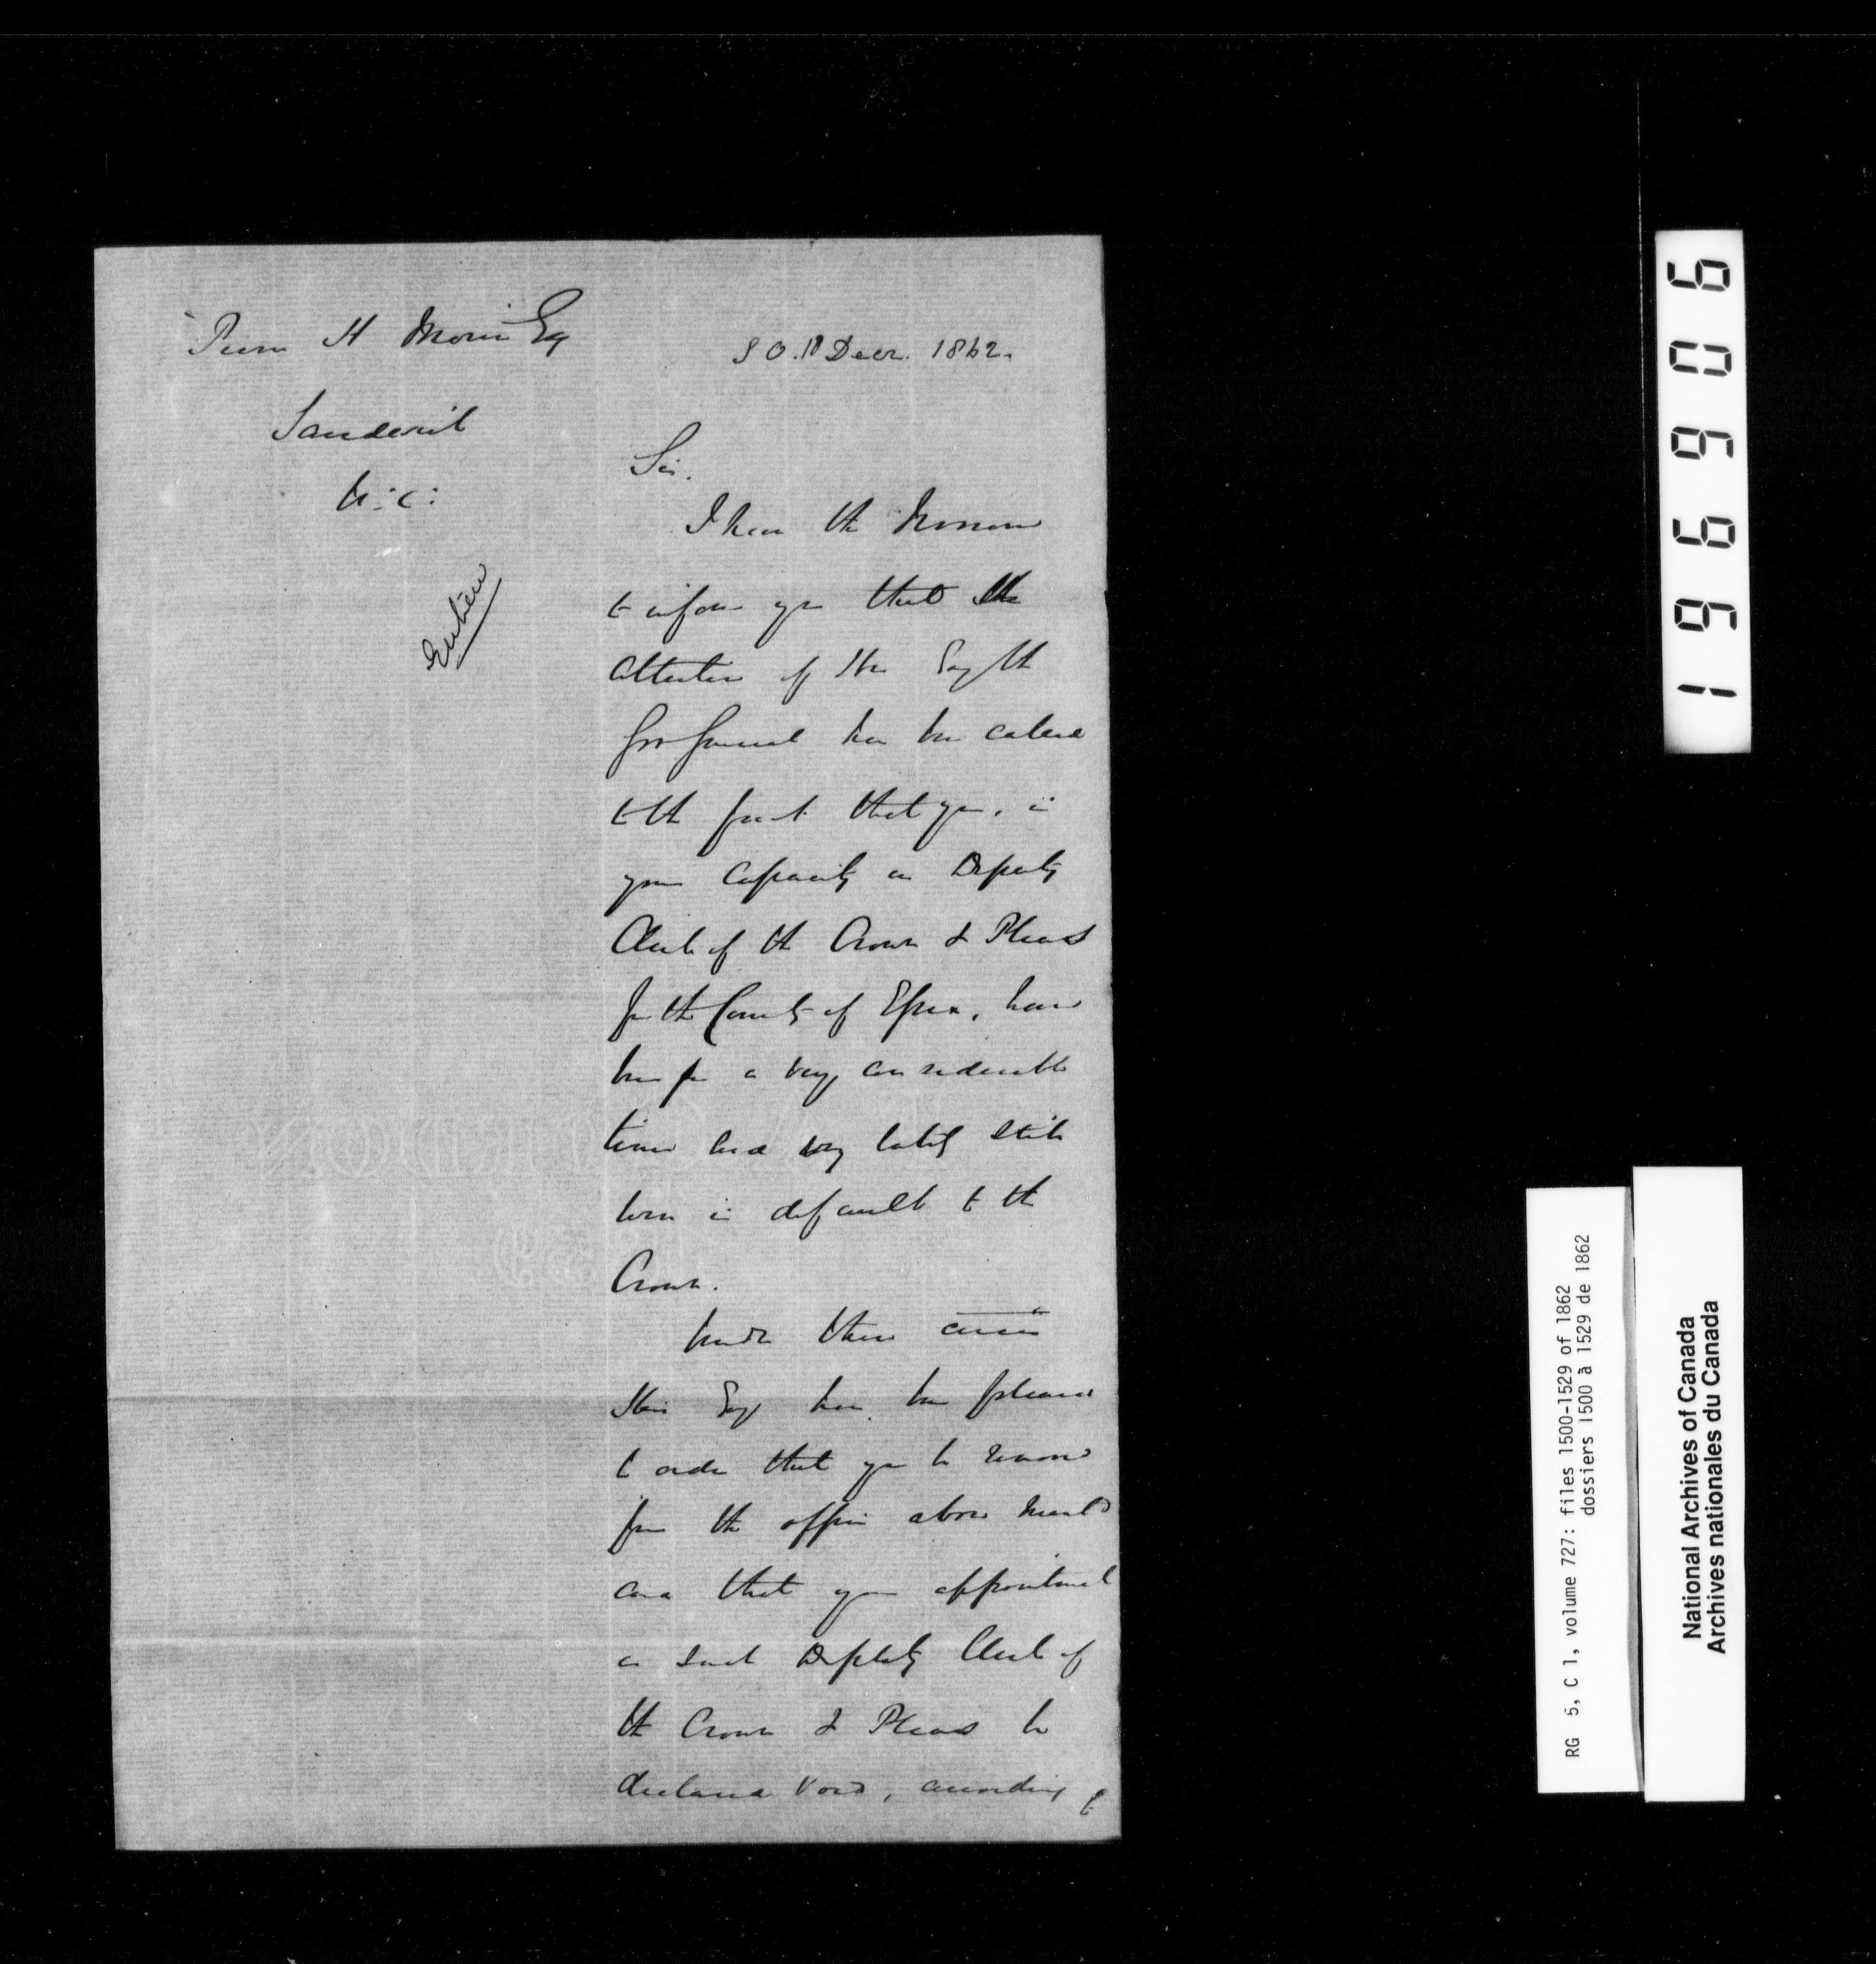 Pierre H Morin Esq
Sandwich
U:C:
Entd
S O. 18 Decr. 1862.
Sir.
I have the honour
to inform you that the
attention of His Exy the
Gov General has been called
to the fact that you, in
your capacity as Deputy
Clerk of the Crown & Pleas
for the County of Essex, have
been for a very considerable
time and very lately still
were in default to the
Crown.
Under these circes
His Exy has been pleased
to order that you be removed
from the office above ment'd
and that your appointment
as such Deputy Clerk of
the Crown & Pleas be
declared void, according to
196906
RG 5, C 1, volume 727: files 1500-1529 of 1862
dossiers 1500 à 1529 de 1862
National Archives of Canada
Archives nationales du Canada